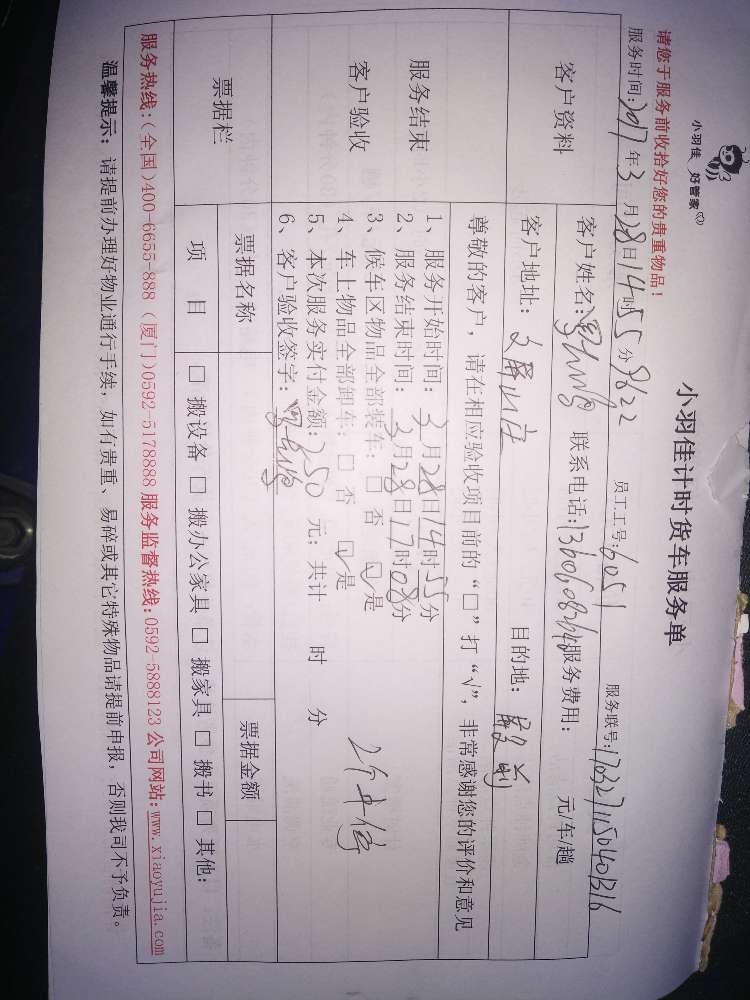 小羽佳 好管家
小羽佳计时货车服务单
请您于服务前收拾好您的贵重物品！
服务时间：2017年3月28日14时55分 员工工号：6051 服务联号：
客户资料
客户姓名： 联系电话： 服务费用： 元/车/趟
客户地址： 目的地：
尊敬的客户，请在相应验收项目前的“□”打“√”，非常感谢您的评价和意见
服务结束
客户验收
1、服务开始时间：3月28日14时55分
2、服务结束时间：3月28日17时08分
3、候车区物品全部装车：□ 否 ☑ 是
4、车上物品全部卸车：□ 否 ☑ 是
5、本次服务实付金额：250 元；共计 时 分
6、客户验收签字：
票据栏
票据名称 票据金额
项 目 □ 搬设备 □ 搬办公家具 □ 搬家具 □ 搬书 □ 其他：
服务热线：(全国)400-6655-888 (厦门)0592-5178888 服务监督热线：0592-5888123 公司网站：www.xiaoyujia.com
温馨提示：请提前办理好物业通行手续，如有贵重、易碎或其它特殊物品请提前申报，否则我司不予负责。